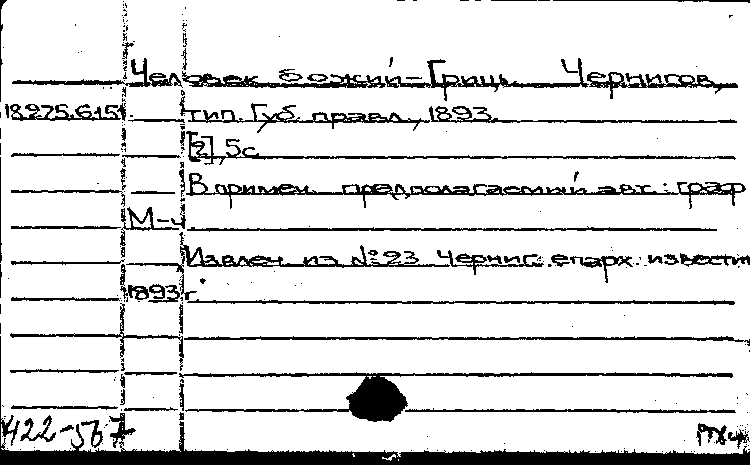 Человек божий – Гриць. Чернигов,
18.275.6.151. тип. Губ. правл., 1893.
[2], 5 с.
В примеч. предполагаемый авт.: граф
М-ч.
Извлеч. из №23 Черниг. епарх. известий
1893 г.
422-567